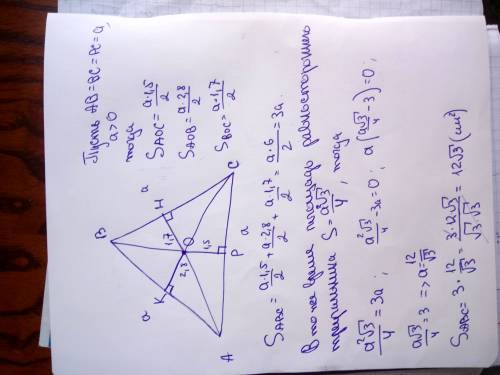 B
a
a
K
H
2,8
1,7
O
1,5
A
P
a
C
Пусть AB=BC=AC=a,
a>0
тогда
S_AOC = a·1,5/2
S_AOB = a·2,8/2
S_BOC = a·1,7/2
S_ABC = a·1,5/2 + a·2,8/2 + a·1,7/2 = a·6/2 = 3a.
В то же время площадь равностороннего
треугольника S = a²√3/4, тогда
a²√3/4 = 3a; a²√3/4 - 3a = 0; a(a√3/4 - 3) = 0;
a√3/4 = 3 => a = 12/√3
S_ABC = 3·12/√3 = 3·12√3/√3·√3 = 12√3 (см²)